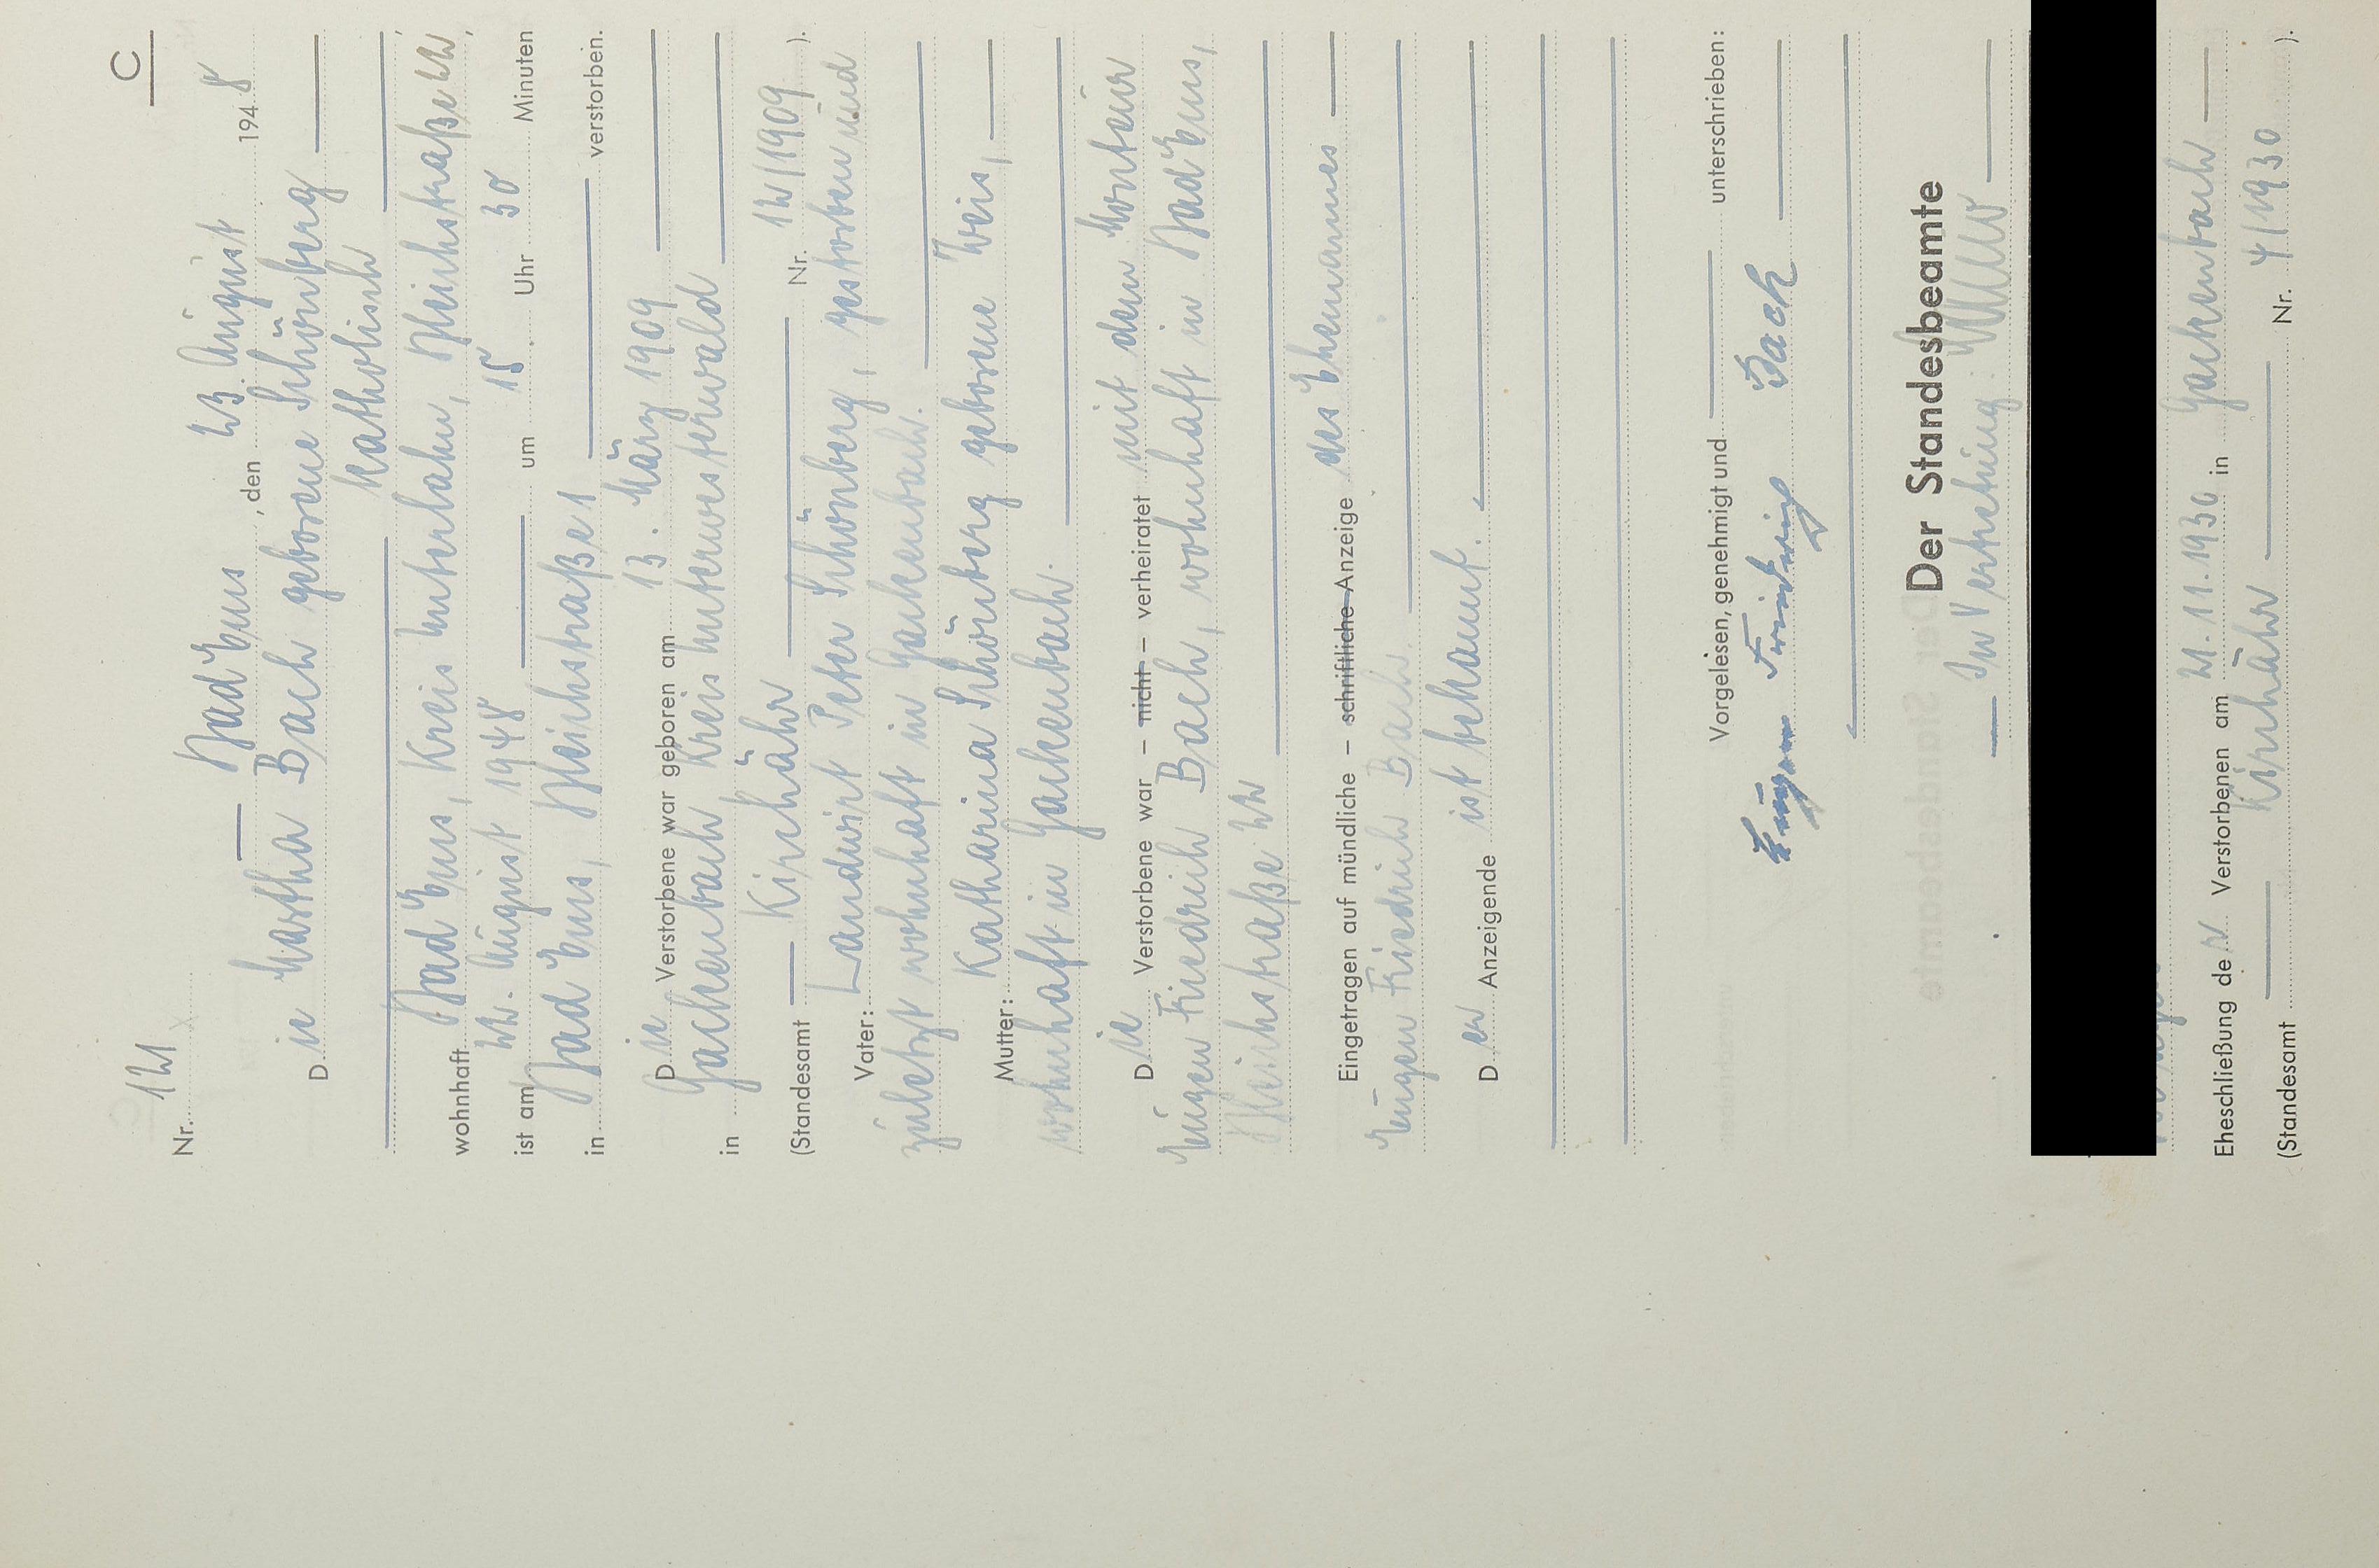 C
Nr. 121
Bad Ems, den 23. August 1948
Die Martha Bach geborene Schönberg
katholisch
wohnhaft Bad Ems, Kreis Unterlahn, Bleichstraße 22,
ist am 22. August 1948 um 15 Uhr 30 Minuten
in Bad Ems, Bleichstraße 1 verstorben.
Die Verstorbene war geboren am 13. März 1909
in Gackenbach Kreis Unterwesterwald
(Standesamt Kirchähr Nr. 12/1909 ).
Vater: Landwirt Peter Schönberg, gestorben und
zuletzt wohnhaft in Gackenbach.
Mutter: Katharina Schönberg geborene Weis,
wohnhaft in Gackenbach.
Die Verstorbene war – nicht – verheiratet mit dem Monteur
Eugen Friedrich Bach, wohnhaft in Bad Ems,
Bleichstraße 22
Eingetragen auf mündliche – schriftliche Anzeige des Ehemannes
Eugen Friedrich Bach.
Der Anzeigende ist bekannt.
Vorgelesen, genehmigt und unterschrieben:
Eugen Friedrich Bach
Der Standesbeamte
In Vertretung:
Eheschließung der Verstorbenen am 21.11.1930 in Gackenbach
(Standesamt Kirchähr Nr. 4/1930 ).